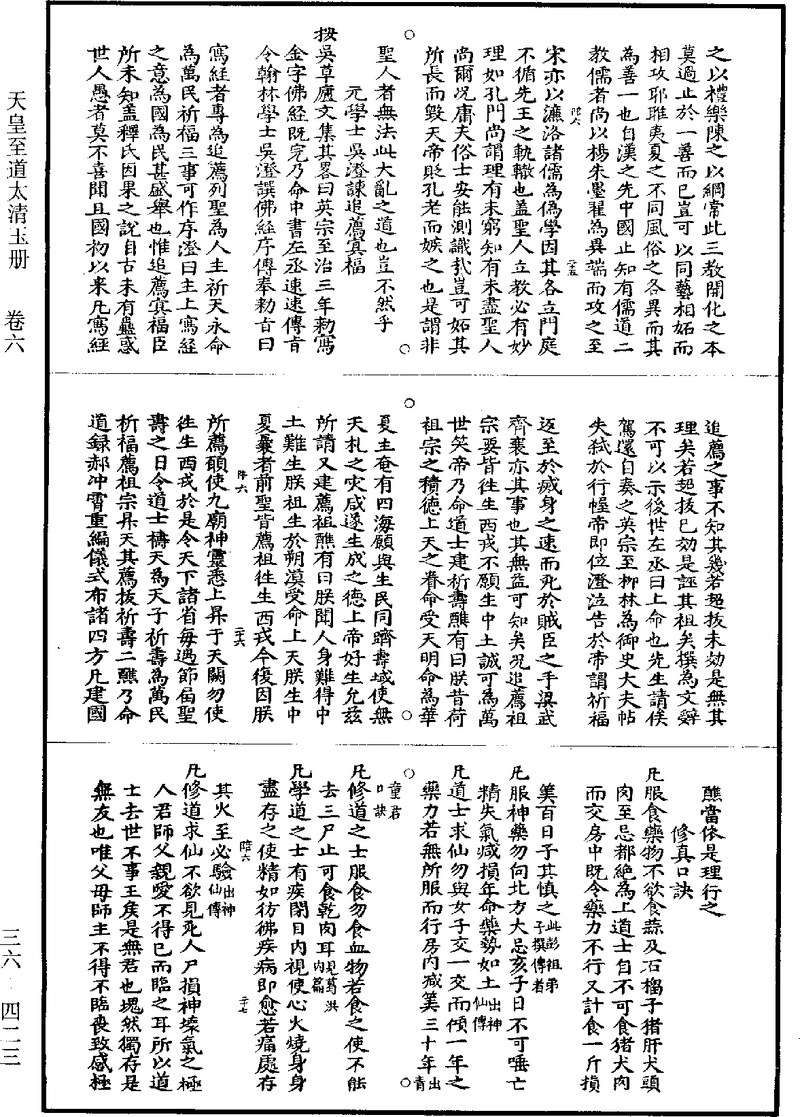 天皇至道太清玉册　卷六
三六—四二三
之以禮樂陳之以綱常此三教開化之本
莫過止於一善而已豈可以同藝相妬而
相攻耶雖夷夏之不同風俗之各異而其
為善一也自漢之先中國止知有儒道二
教儒者尚以楊朱墨翟為異端而攻之至
陪六
二十五
宋亦以濂洛諸儒為偽學因其各立門庭
不循先王之軌轍也盖聖人立教必有妙
理如孔門尚謂理有未窮知有未盡聖人
尚爾况庸夫俗士安能測識哉豈可妬其
所長而毀天帝貶孔老而嫉之也是謂非
聖人者無法此大亂之道也豈不然乎
元學士吳澄諫追薦冥福
按吳草廬文集其畧曰英宗至治三年勑寫
金字佛經既完乃命中書左丞速速傳旨
令翰林學士吳澄譔佛經序傳奉勑旨曰
寫經者專為追薦列聖為人主祈天永命
為萬民祈福三事可作序澄曰主上寫經
之意為國為民甚盛舉也惟追薦冥福臣
所未知盖釋氏因果之說自古未有蠱惑
世人愚者莫不喜聞且國初以來凡寫經
追薦之事不知其幾若超拔未効是無其
理矣若超拔已効是誣其祖矣撰為文辭
不可以示後世左丞曰上命也先生請俟
駕還自奏之英宗至柳林為御史大夫帖
失弑於行幄帝即位澄泣告於帝謂祈福
返至於喪身之速而死於賊臣之手梁武
齊襄亦其事也其無益可知矣况追薦祖
宗要皆徃生西戎不願生中土誠可為萬
世笑帝乃命道士建祈壽醮有曰朕昔荷
祖宗之積德上天之眷命受天明命為華
夏主奄有四海願與生民同躋壽域使無
天札之灾咸遂生成之德上帝好生允兹
所請又建薦祖醮有曰朕聞人身難得中
土難生朕祖生於朔漠受命上天朕生中
夏曩者前聖皆薦祖徃生西戎今復因朕
陪六
二十六
所薦願使九廟神靈悉上昇于天闕勿使
徃生西戎於是令天下諸省每遇節屆聖
壽之日令道士禱天為天子祈壽為萬民
祈福薦祖宗昇天其薦拔祈壽二醮乃命
道録郝冲霄重編儀式布諸四方凡建國
醮當依是理行之
修真口訣
凡服食藥物不欲食蒜及石榴子猪肝犬頭
肉至忌都絶為上道士自不可食猪犬肉
而交房中既令藥力不行又計食一斤損
筭百日子其慎之此彭祖弟子撰傳者
凡服神藥勿向北方大忌亥子日不可唾亡
精失氣减損年命藥勢如土出神仙傳
凡道士求仙勿與女子交一交而傾一年之
藥力若無所服而行房内减筭三十年出青
童君口訣
凡修道之士服食勿食血物若食之使不能
去三尸止可食乾肉耳見葛洪内篇
凡學道之士有疾閉目内視使心火燒身身
盡存之使精如彷彿疾病即愈若痛處存
其火至必驗出神仙傳
陪六
二十七
凡修道求仙不欲見死人尸損神壞氣之極
人君師父親愛不得已而臨之耳所以道
士去世不事王矦是無君也塊然獨存是
無友也唯父母師主不得不臨喪致感極